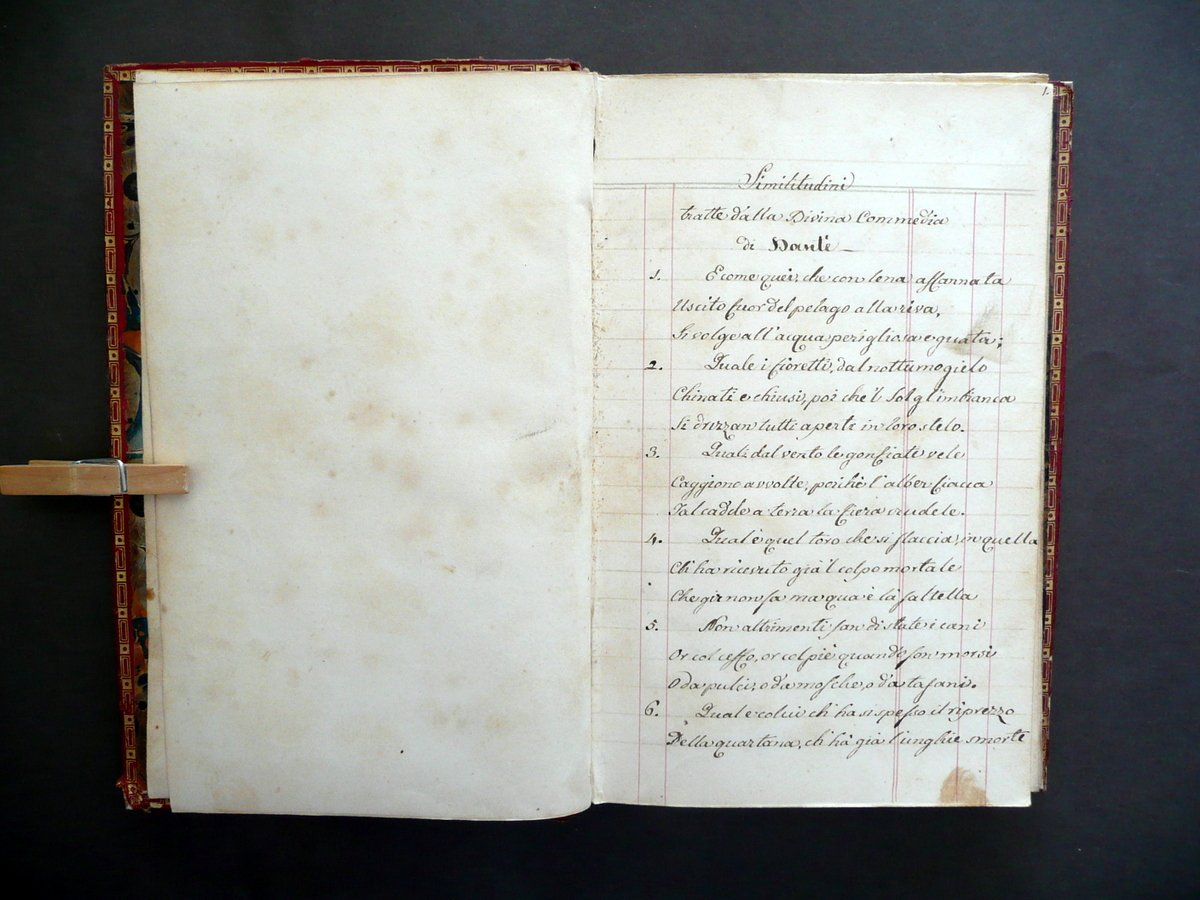 1.
Similitudini
tratte dalla Divina Commedia
di Dante —
1. E come quei, che con lena affannata
Uscito fuor del pelago alla riva,
Si volge all'acqua perigliosa e guata;
2. Quale i fioretti, dal notturno gielo
Chinati e chiusi, poi che'l Sol gl'imbianca
Si drizzan tutti aperti in loro stelo.
3. Quali dal vento le gonfiate vele
Caggiono avvolte, poichè l'alber fiacca
Tal cadde a terra la fiera crudele.
4. Qual è quel toro che si slaccia in quella
Ch'ha ricevuto già'l colpo mortale
Che gir non sa ma qua e là saltella
5. Non altrimenti fan di state i cani
Or col ceffo, or col piè quando son morsi
O da pulci, o da mosche, o da tafani.
6. Qual è colui ch'ha sì spesso il riprezzo
Della quartana, ch'ha già l'unghie smorte